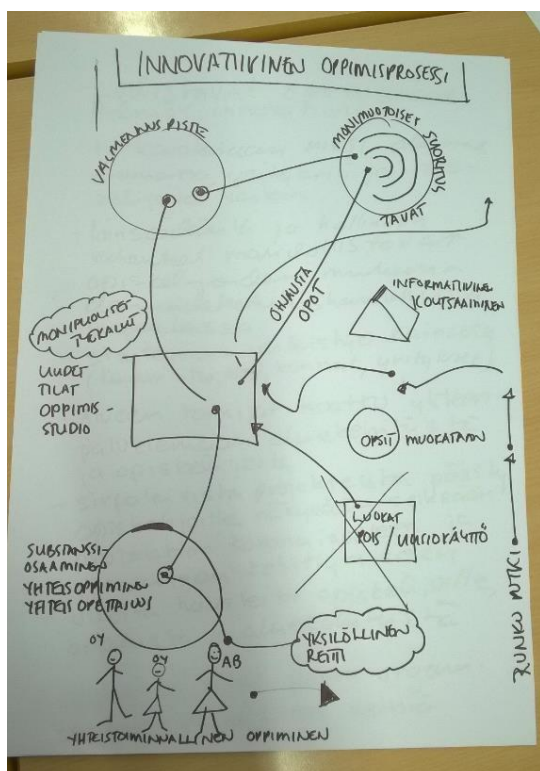 INNOVATIIVINEN OPPIMISPROSESSI
VALMENNUS PISTE
MONIMUOTOISET SUORITUS
TAVAT
OHJAUSTA
OPOT
INFORMATIIVINEN
KOUTSAAMINEN
MONIPUOLISET
TYÖKALUT
UUDET
TILAT
OPPIMIS-
STUDIO
OPSIT MUOKATAAN
LUOKAT
POIS / UUSIOKÄYTTÖ
SUBSTANSSI-
OSAAMINEN
YHTEISOPPIMINEN
YHTEISOPETTAJUUS
YKSILÖLLINEN
REITTI
RUNKO
OY
OY
AB
YHTEISTOIMINNALLINEN OPPIMINEN